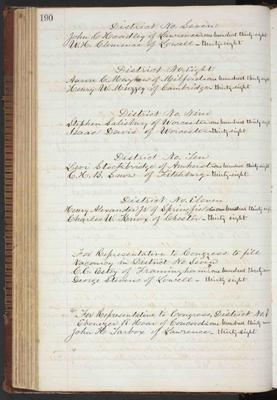 190
District No. Seven
John C. Hoadley of Lawrence one hundred thirty eight
of Lowell - thirty eight
District No. Eight
Aaron C. Mayhew of Milford one hundred thirty eight
Henry W. Muzzey of Cambridge thirty eight
District No. Nine
Stephen Salisbury of Worcester one hundred thirty eight
Isaac Davis of Worcester thirty eight
District No. Ten
Levi Stockbridge of Amherst one hundred thirty eight
of Fitchburg - thirty eight
District No. Eleven
Henry Alexander Jr of Springfield one hundred thirty eight
Charles W. Knox of Chester - thirty eight
For Representative to Congress to fill
Vacancy in District No. Seven
C. C. Esty of Framingham one hundred thirty
George Stevens of Lowell - thirty eight
For Representative to Congress, District No.
Ebenezer R Hoar of Concord one hundred thirty
John K. Tarbox of Lawrence - thirty eight